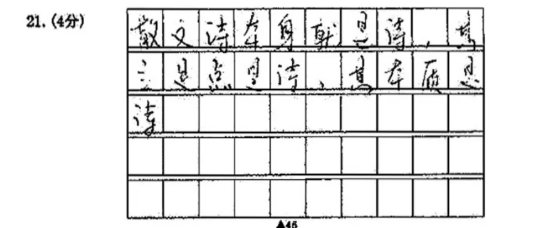 21.(4分)
散文诗本身就是诗，其
立足点是诗，其本质是
诗
▲45